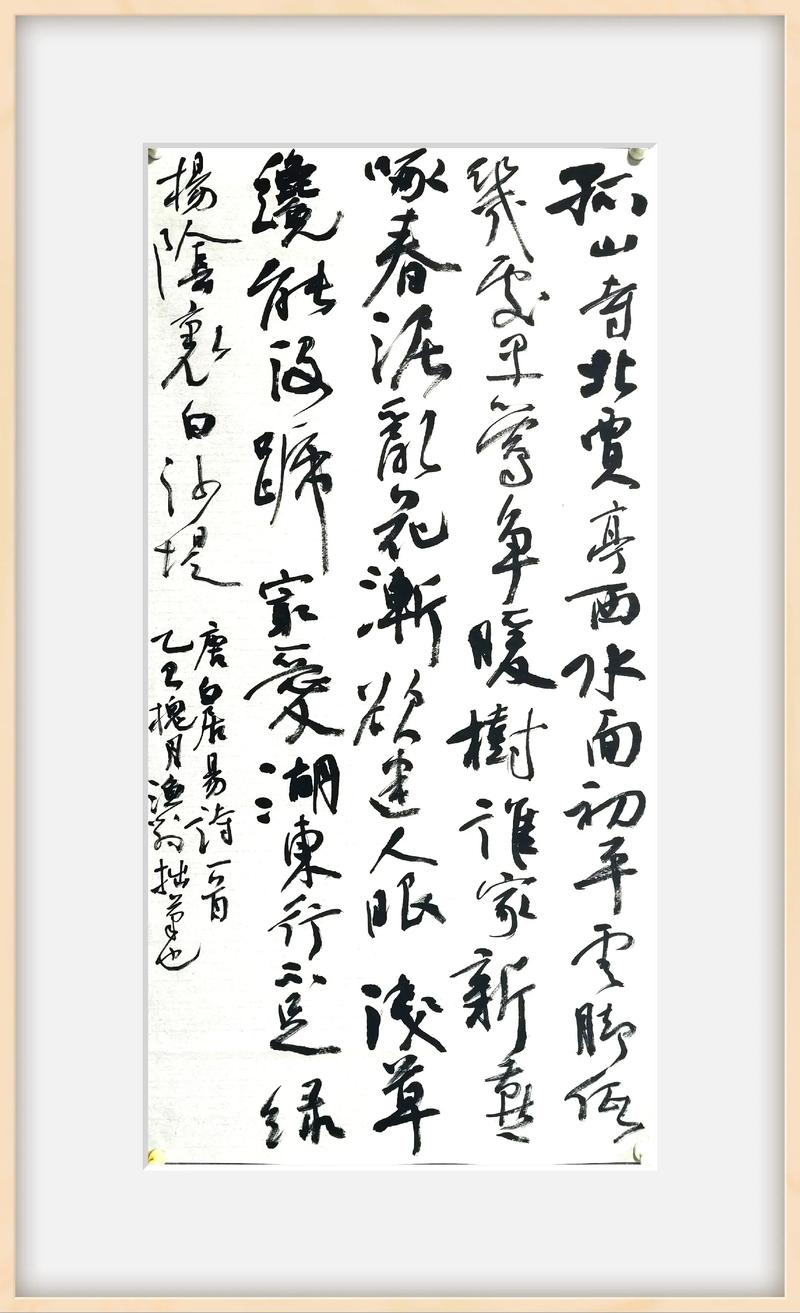 孤山寺北賈亭西水面初平雲脚低
幾處早鶯争暖樹誰家新燕
啄春泥亂花漸欲迷人眼浅草
纔能没蹄最愛湖東行不足绿
楊陰裏白沙堤
唐白居易詩一首
乙巳槐月漁翁拙筆也